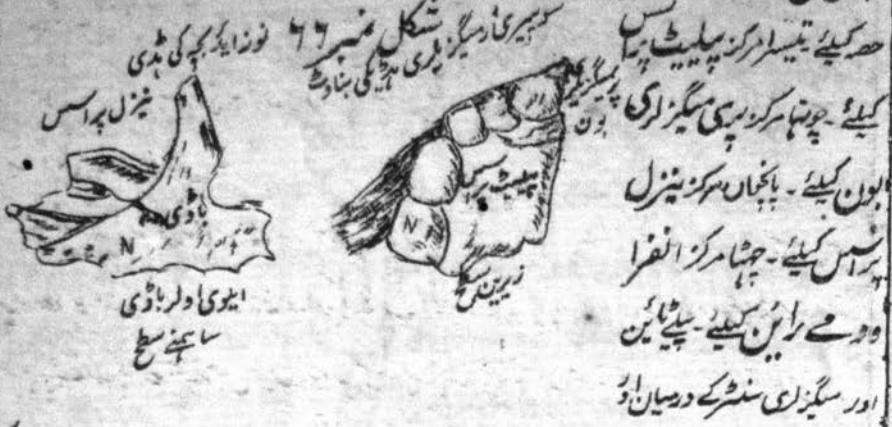 حصہ کیلئے تیسرا مرکز پیلیٹ پراسس
کیلئے۔ چوتھا مرکز پری میگزلری
بون کیلئے۔ پانچواں مرکز نیزل
پراسس کیلئے۔ چھٹا مرکز انفرا
وومے رائن کیلئے۔ پیلے ٹائین
اور میگزلری سنٹر کے درمیان اور
شکل نمبر ۶۶
نوزائد بچہ کی ہڈی
میگزلری ہڈی کی بناوٹ
پری میگزلری
بون
پیلیٹ پراسس
N
زیریں سطح
نیزل پراسس
باڈی
N
ایلوی اولر باڈی
سامنے سطح